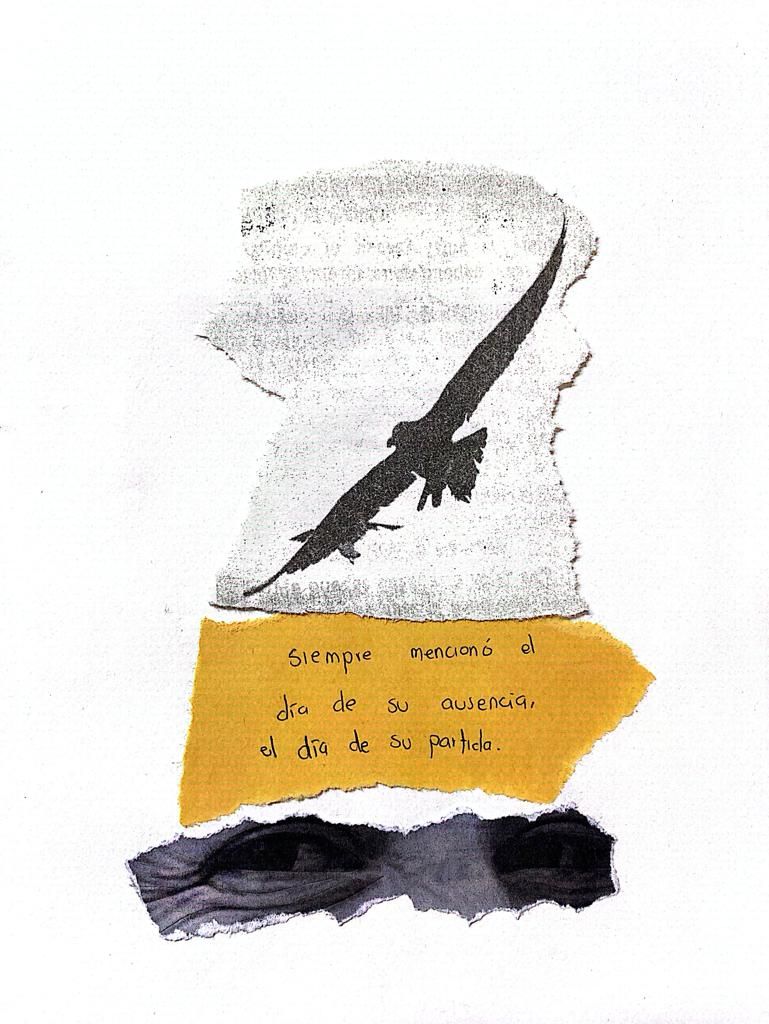 siempre mencionó el
día de su ausencia,
el día de su partida.